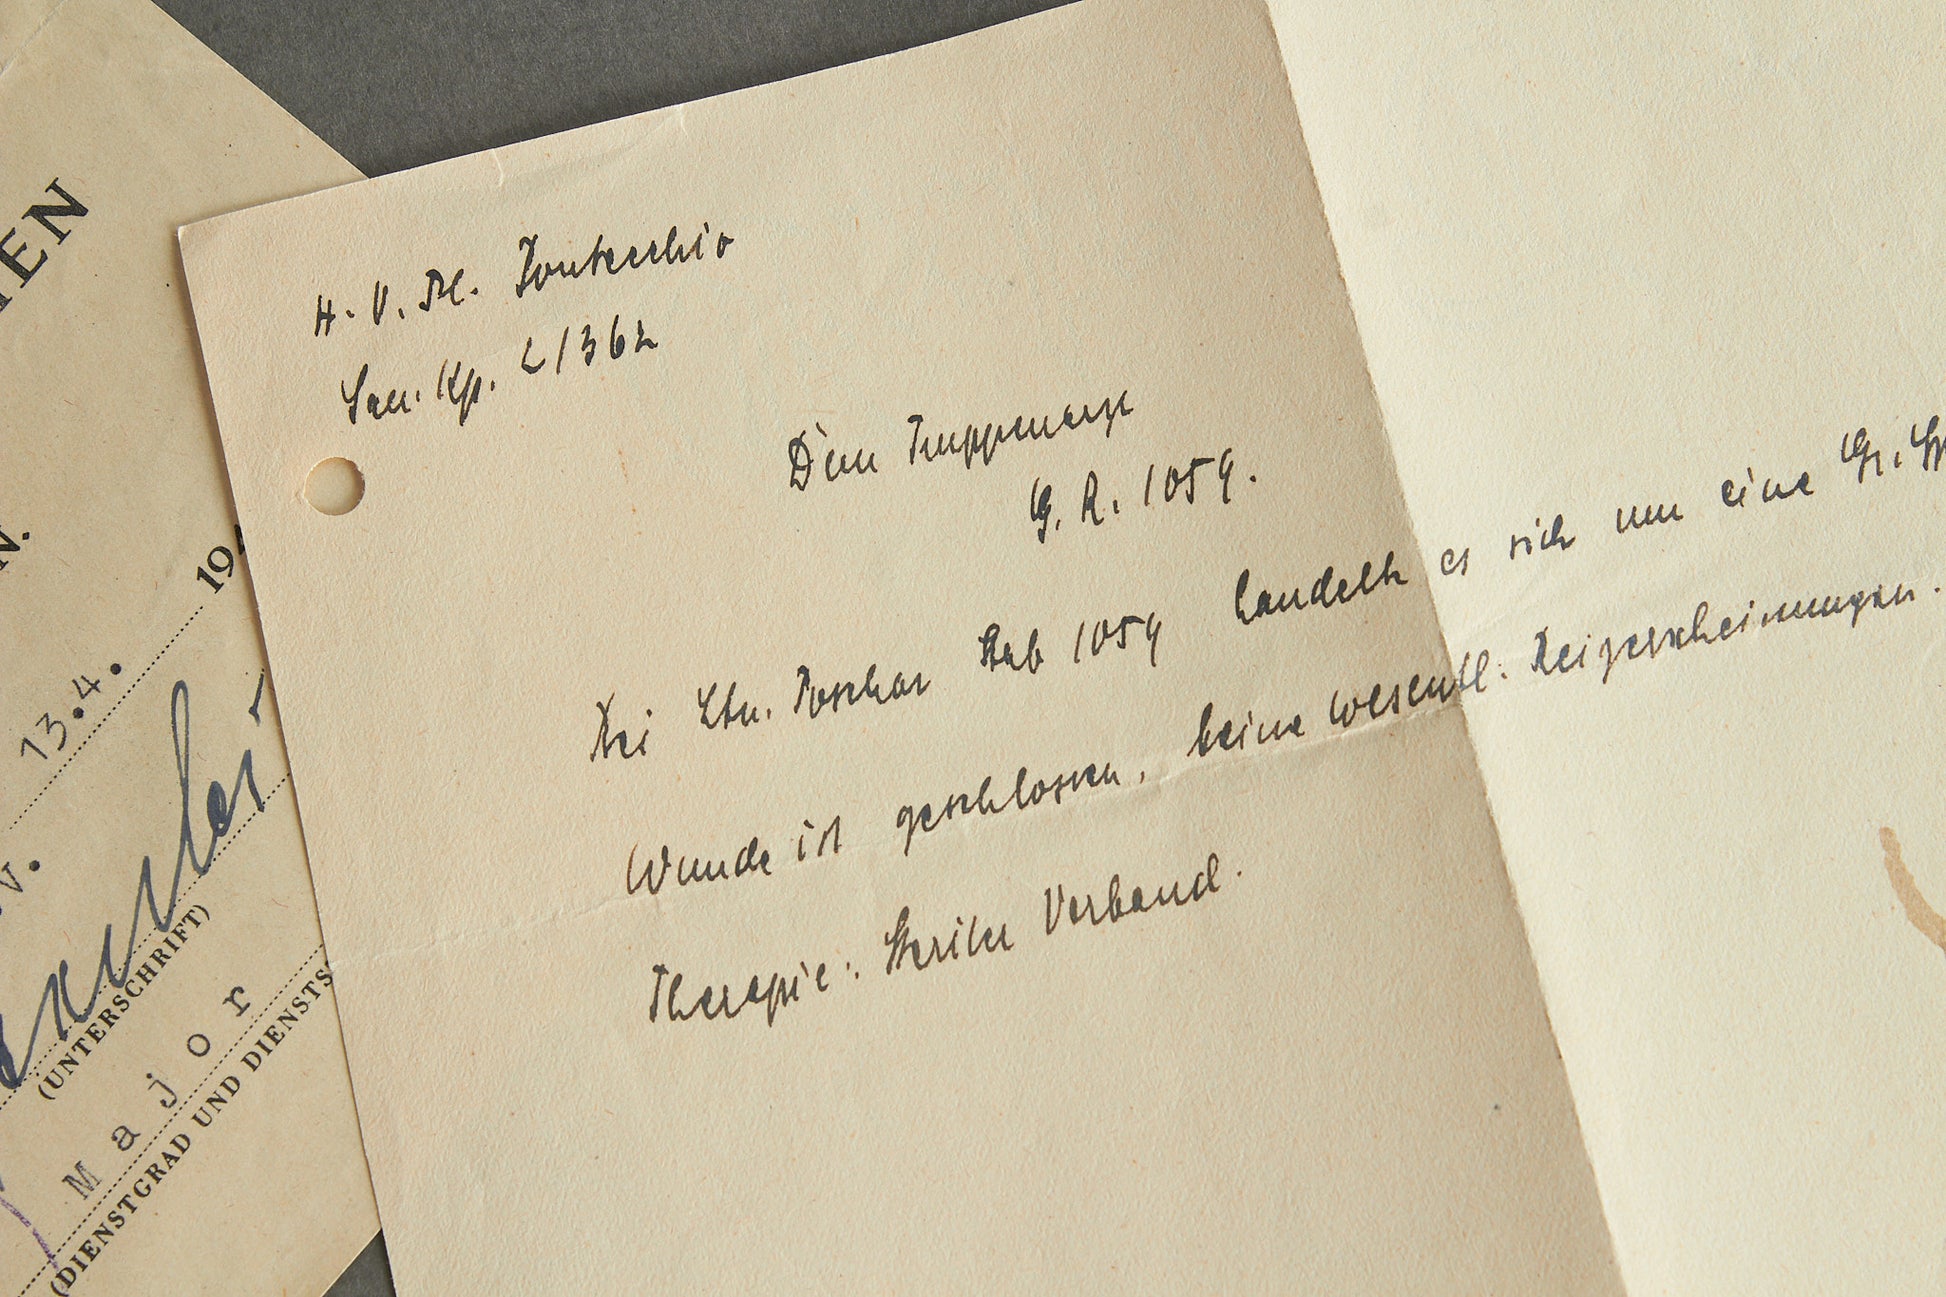 H. V. Pl. Pontecchio
San. Kp. 2/362
Dem Truppenarzt
G. R. 1059.
Bei Ltn. Poschar Stab 1059 handelt es sich um eine Gr. Sp
Wunde ist geschlossen, keine wesentl. Reizerscheinungen.
Therapie: Steriler Verband.
EN
N.
194
13.4.
V.
(UNTERSCHRIFT)
Major
(DIENSTGRAD UND DIENSTS